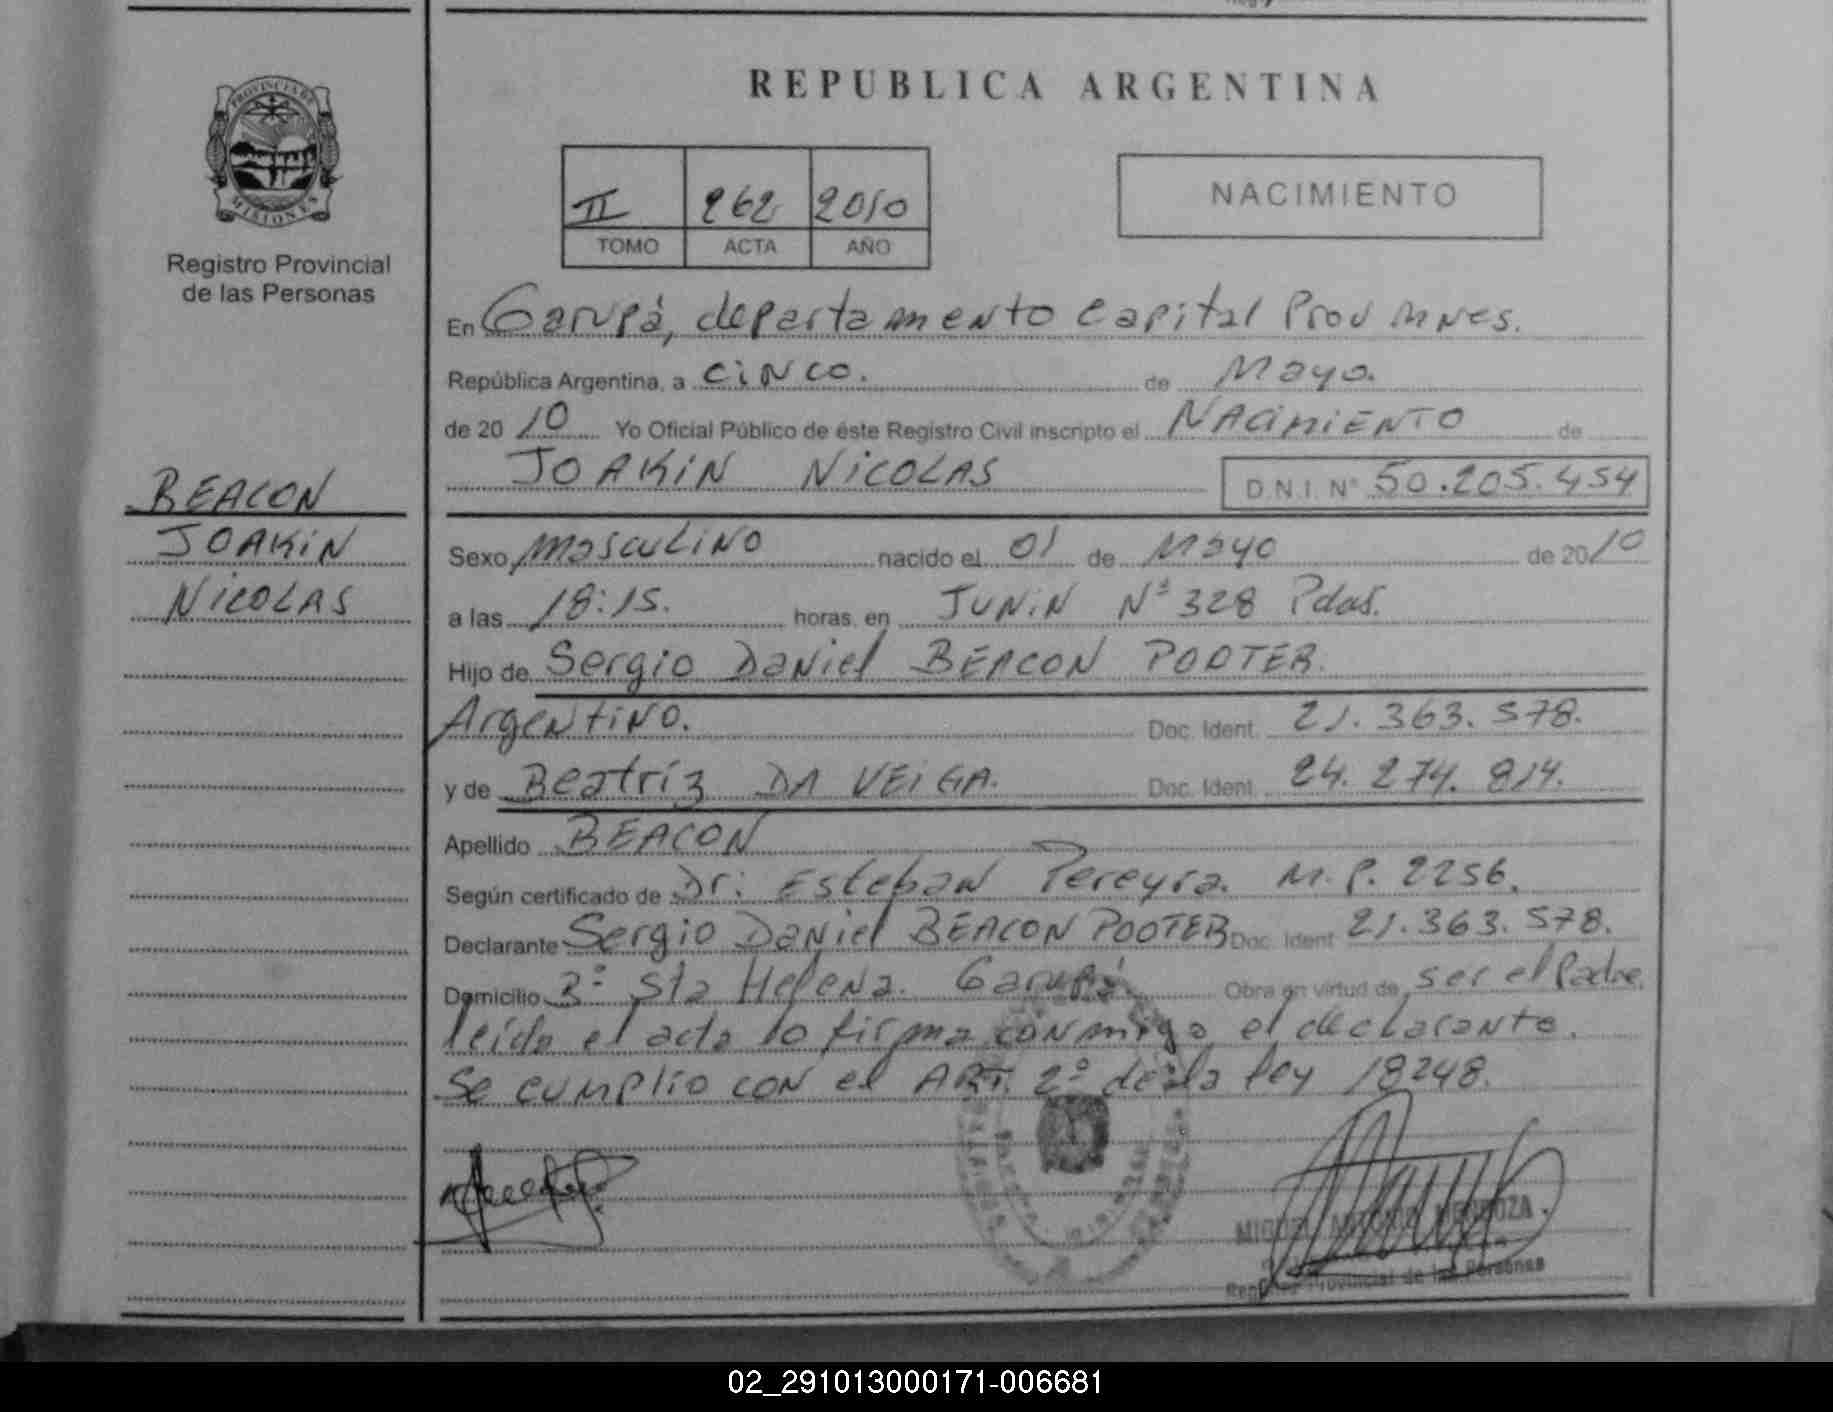 PROVINCIA DE
MISIONES
Registro Provincial
de las Personas
BEACON
JOAKIN
NICOLAS
REPUBLICA ARGENTINA
II 262 2010
TOMO ACTA AÑO
NACIMIENTO
En Garupá, departamento Capital Prov Mnes.
República Argentina, a CINCO. de Mayo.
de 20 10 Yo Oficial Público de éste Registro Civil inscripto el NACIMIENTO de
JOAKIN NICOLAS D.N.I. Nº 50.205.454
Sexo masculino nacido el 01 de Mayo de 20 10
a las 18:15. horas, en JUNIN Nº 328 Pdas.
Hijo de Sergio Daniel BEACON POOTER.
Argentino. Doc. Ident. 21.363.578.
y de Beatríz DA VEIGA. Doc. Ident. 24.274.814.
Apellido BEACON
Según certificado de Dr: Esteban Pereyra. M.P. 2256.
Declarante Sergio Daniel BEACON POOTER Doc. Ident 21.363.578.
Domicilio Bº Sta Helena. Garupá Obra en virtud de ser el Padre.
leída el acta lo firma conmigo el declarante.
Se cumplio con el ART. 2º de la ley 18248.
MIGUEL ANTONIO MENDOZA
Registro Provincial de las Personas
02_291013000171-006681